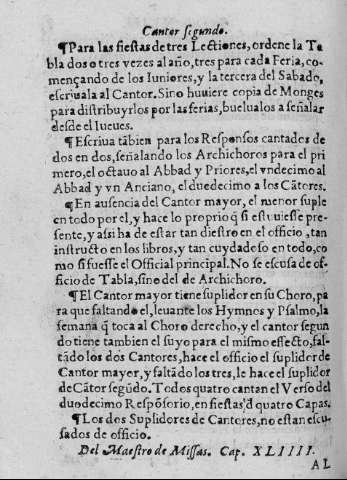 Cantor segundo.
¶Para las fiestas de tres Lectiones, ordene la Ta
bla dos o tres vezes al año, tres para cada Feria, co-
mençando de los Iuniores, y la tercera del Sabado,
escriuala al Cantor. Sino huuiere copia de Monges
para distribuyrlos por las ferias, buelualos a señalar
desde el Iueues.
¶Escriua tãbien para los Responsos cantados de
dos en dos, señalando los Archichoros para el pri
mero, el octauo al Abbad y Priores, el vndecimo al
Abbad y vn Anciano, el duedecimo a los Cãtores.
¶En ausencia del Cantor mayor, el menor suple
en todo por el, y hace lo proprio q̃ si estuuiesse pre-
sente, y assi ha de estar tan diestro en el officio, tan
instructo en los libros, y tan cuydadoso en todo, co
mo si fuesse el Official principal. No se escusa de of-
ficio de Tabla, sino del de Archichoro.
¶El Cantor mayor tiene suplidor en su Choro, pa
ra que faltando el, leuante los Hymnos y Psalmo, la
semana q̃ toca al Choro derecho, y el cantor segun
do tiene tambien el suyo para el mismo effecto, fal-
tãdo los dos Cantores, hace el officio el suplidor de
Cantor mayer, y faltãdo los tres, le hace el suplidor
de Cãtor segũdo. Todos quatro cantan el Verso del
duodecimo Respõsorio, en fiestas d' quatro Capas.
¶Los dos Suplidores de Cantores, no estan escu-
sados de officio.
Del Maestro de Missas. Cap. XLIIII.
AL